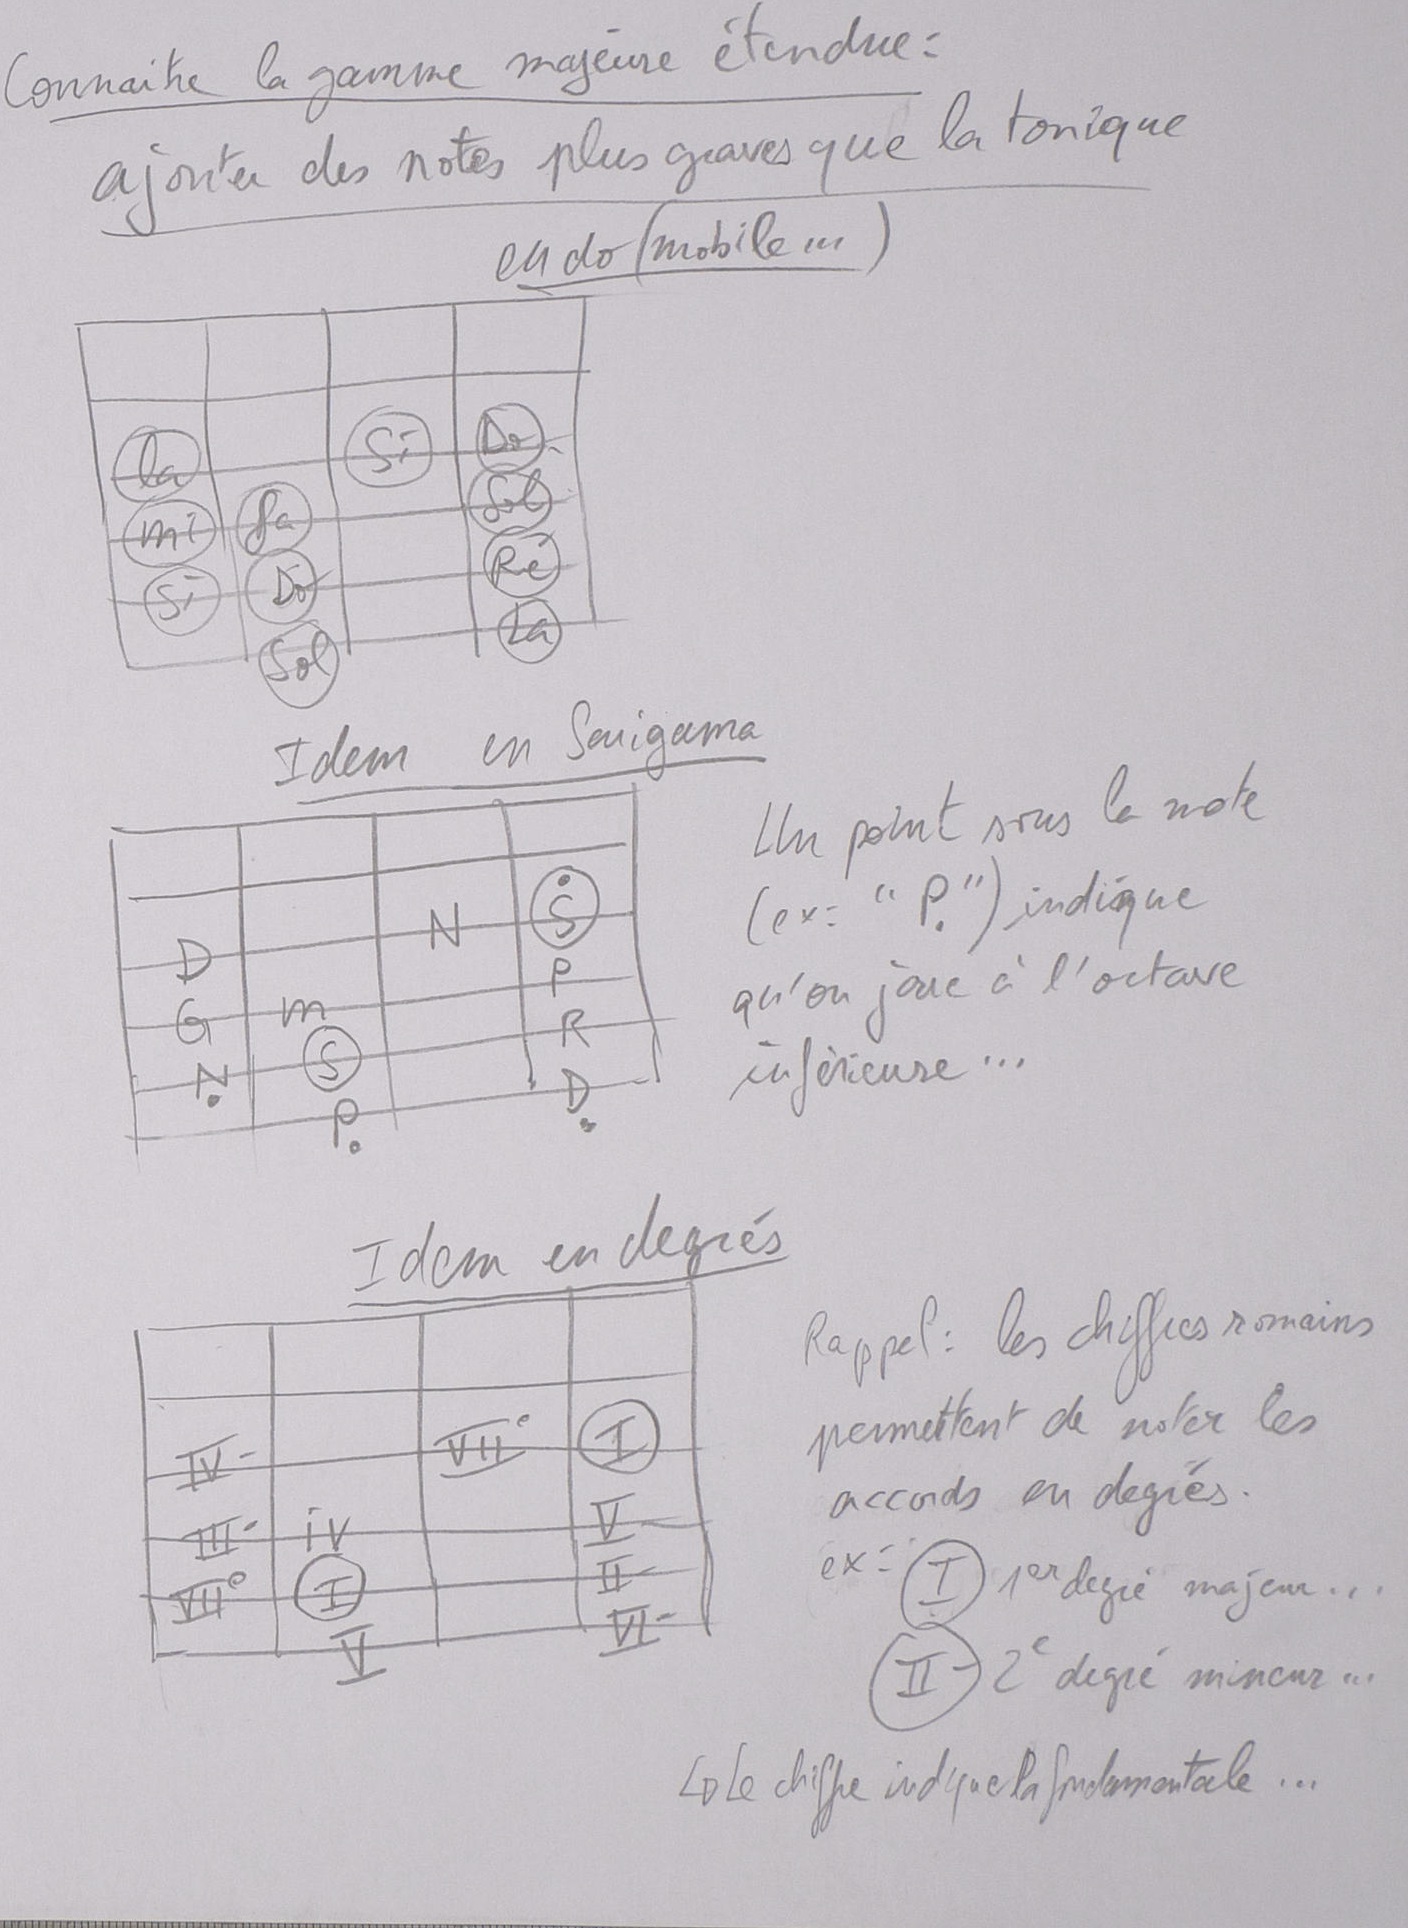 Connaitre la gamme majeure étendue :
ajouter des notes plus graves que la tonique
en do (mobile...)
la Si Do
mi fa Sol
Si Do Ré
Sol La
Idem en Sarigama
Un point sous la note
D N Ṡ
(ex: "P.") indique
G m P
qu'on joue à l'octave
N. S R
inférieure ...
P. D.
Idem en degrés
Rappel : les chiffres romains
permettent de noter les
IV- VII° I
accords en degrés.
III- iv V
ex: I 1er degré majeur...
VII° I II-
V VI-
II- 2e degré mineur...
↳ Le chiffre indique la fondamentale ...